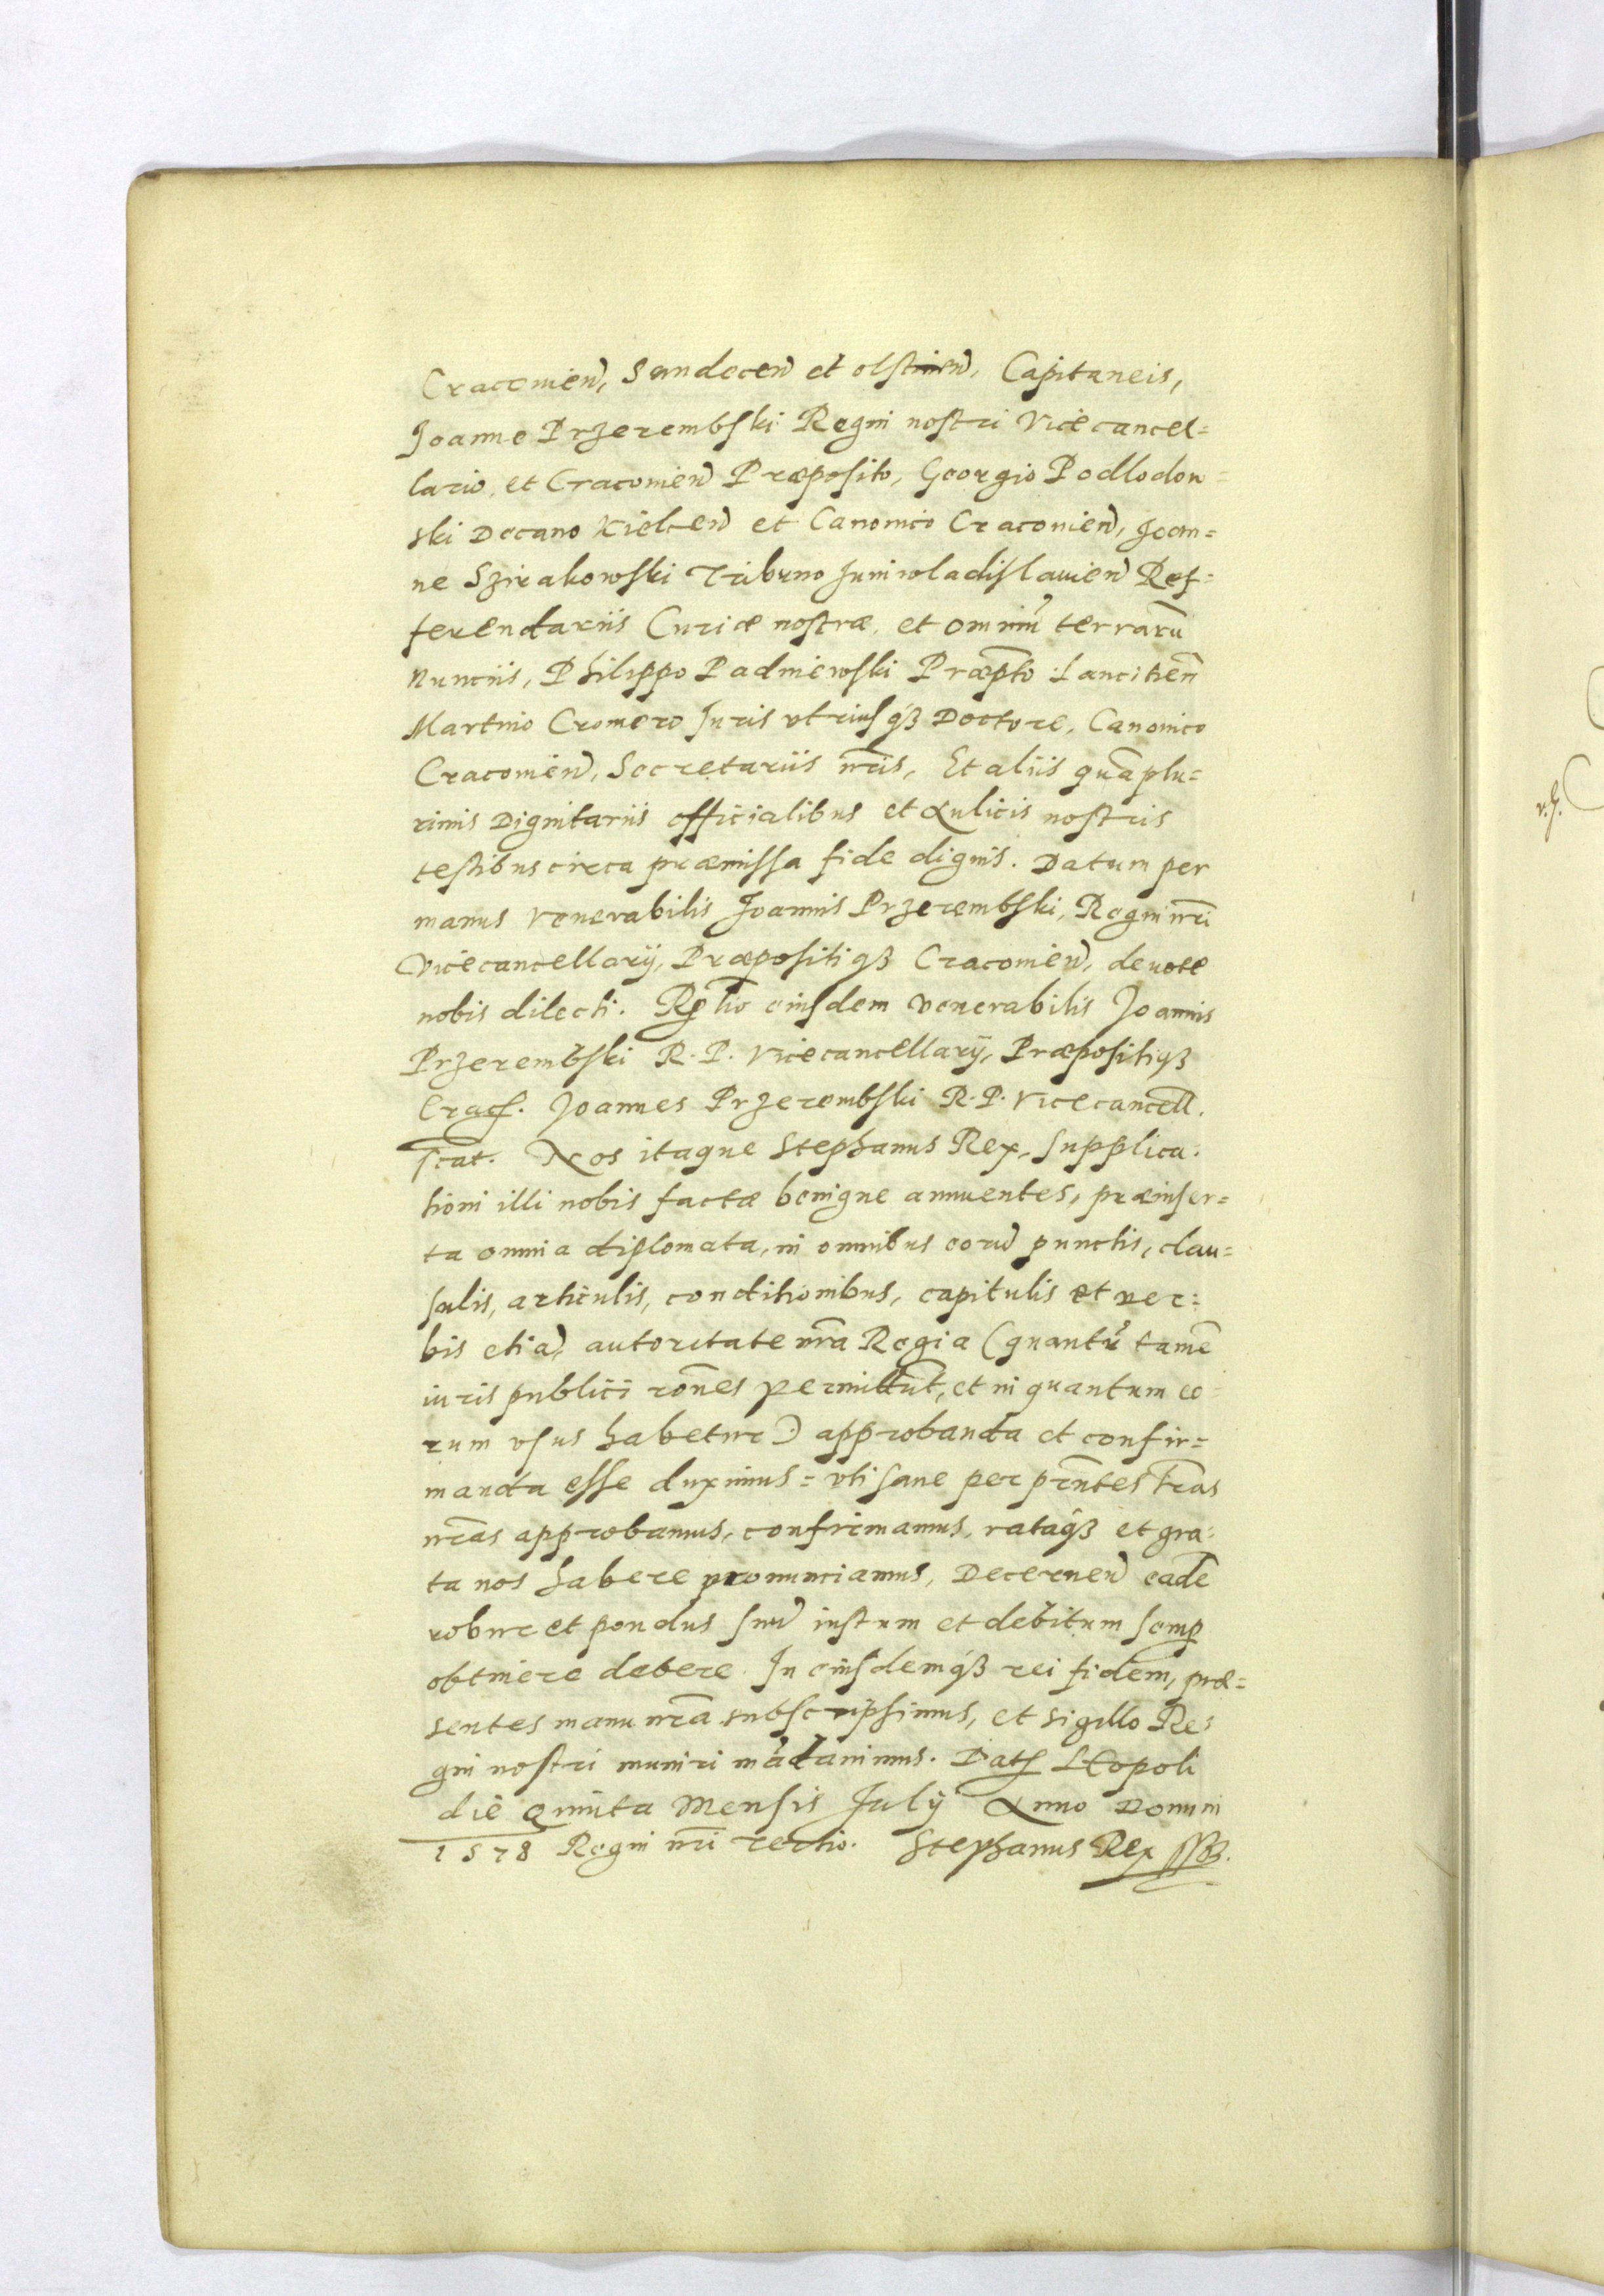 Cracovien̄, Sandecen̄ et olstinen̄, Capitaneis,
Joanne Przerembski Regni nostri Vicecancel=
lario, et Cracovien̄ Præposito, Georgio Podlodow=
ski Decano Kielcen̄ et Canonico Cracovien̄, Joan=
ne Szirakowski Tribuno Juniwladislauien̄ Ref=
ferendariis Curiæ nostræ, et omniū terrarū
Nunciis, Philippo Padniewski Præpto Lancitien̄
Martino Cromero Juris vtriusqȝ Doctore, Canonico
Cracovien̄, Secretariis nr̄is, Et aliis quāplu=
rimis Dignitariis officialibus et Aulicis nostris
testibus circa præmissa fide dignis. Datum per
manus venerabilis Joannis Przerembski, Regni nr̄i
Vicecancellarij, Præpositiqȝ Cracovien̄, deuote
nobis dilecti. Rel̄tio eiusdem venerabilis Joannis
Przerembski R. P. Vicecancellarij, Præpositiqȝ
Crac̄. Joannes Przerembski R. P. Vicecancell.
sc̄at. Nos itaque Stephanus Rex, supplica=
tioni illi nobis factæ benigne annuentes, præinser=
ta omnia diplomata, in omnibus eorū punctis, clau=
sulis, articulis, conditionibus, capitulis et ver=
bis etiā, autoritate nr̄a Regia (quantū tamē
iuris publici rōnes permittūt, et in quantum eo=
rum vsus habetur) approbanda et confir=
manda esse duximus = vti sane per pr̄ntes lr̄as
nr̄as approbamus, confirmamus, rataqȝ et gra=
ta nos habere pronunciamus, Decernen̄ eadē
robur et pondus suū iustum et debitum semp
obtinere debere. In eiusdemqȝ rei fidem, præ=
sentes manu nr̄a subscripsimus, et sigillo Re=
gni nostri muniri mādauimus. Dat̄ Leopoli
die Quinta Mensis Julij Anno Domini
1578 Regni nr̄i Tertio. Stephanus Rex ssȝ.